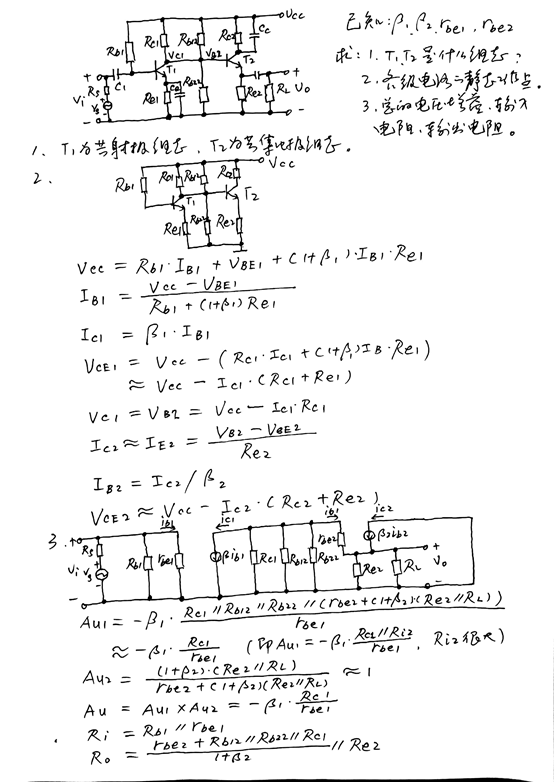 VCC
Rb1 Rc1 Rb12 Rc2 Cc
VC1 VB2 T2
+ C1 T1 +
Rs Vi Vs Re1 Ce Rb22 Re2 RL Vo
已知: β1, β2, rbe1, rbe2
求: 1. T1, T2是什么组态;
2. 各级电路的静态工作点.
3. 总的电压增益、输入
电阻、输出电阻。
1、T1为共射极组态、T2为共集电极组态。
2.
VCC
Rb1 Rc1 Rb12 Rc2
T1 T2
Re1 Rb22 Re2
Vcc = Rb1·IB1 + VBE1 + (1+β1)·IB1·Re1
IB1 = (Vcc - VBE1) / (Rb1 + (1+β1)Re1)
Ic1 = β1·IB1
VCE1 = Vcc - (Rc1·Ic1 + (1+β1)IB·Re1)
≈ Vcc - Ic1·(Rc1+Re1)
Vc1 = VB2 = Vcc - Ic1·Rc1
Ic2 ≈ IE2 = (VB2 - VBE2) / Re2
IB2 = Ic2/β2
VCE2 ≈ Vcc - Ic2·(Rc2+Re2)
3.
ib1 ic1 ib2 ic2
+ Rs Vi Vs Rb1 rbe1 βib1 Rc1 Rb12 Rb22 rbe2 β2ib2 Re2 RL + Vo -
Au1 = -β1·(Rc1//Rb12//Rb22//(rbe2+(1+β2)(Re2//RL)) / rbe1
≈ -β1·Rc1/rbe1 (即Au1 = -β1·Rc1//Ri2/rbe1, Ri2很大)
Au2 = (1+β2)·(Re2//RL) / (rbe2+(1+β2)(Re2//RL)) ≈ 1
Au = Au1×Au2 = -β1·Rc1/rbe1
Ri = Rb1//rbe1
Ro = (rbe2+Rb12//Rb22//Rc1) / (1+β2) // Re2